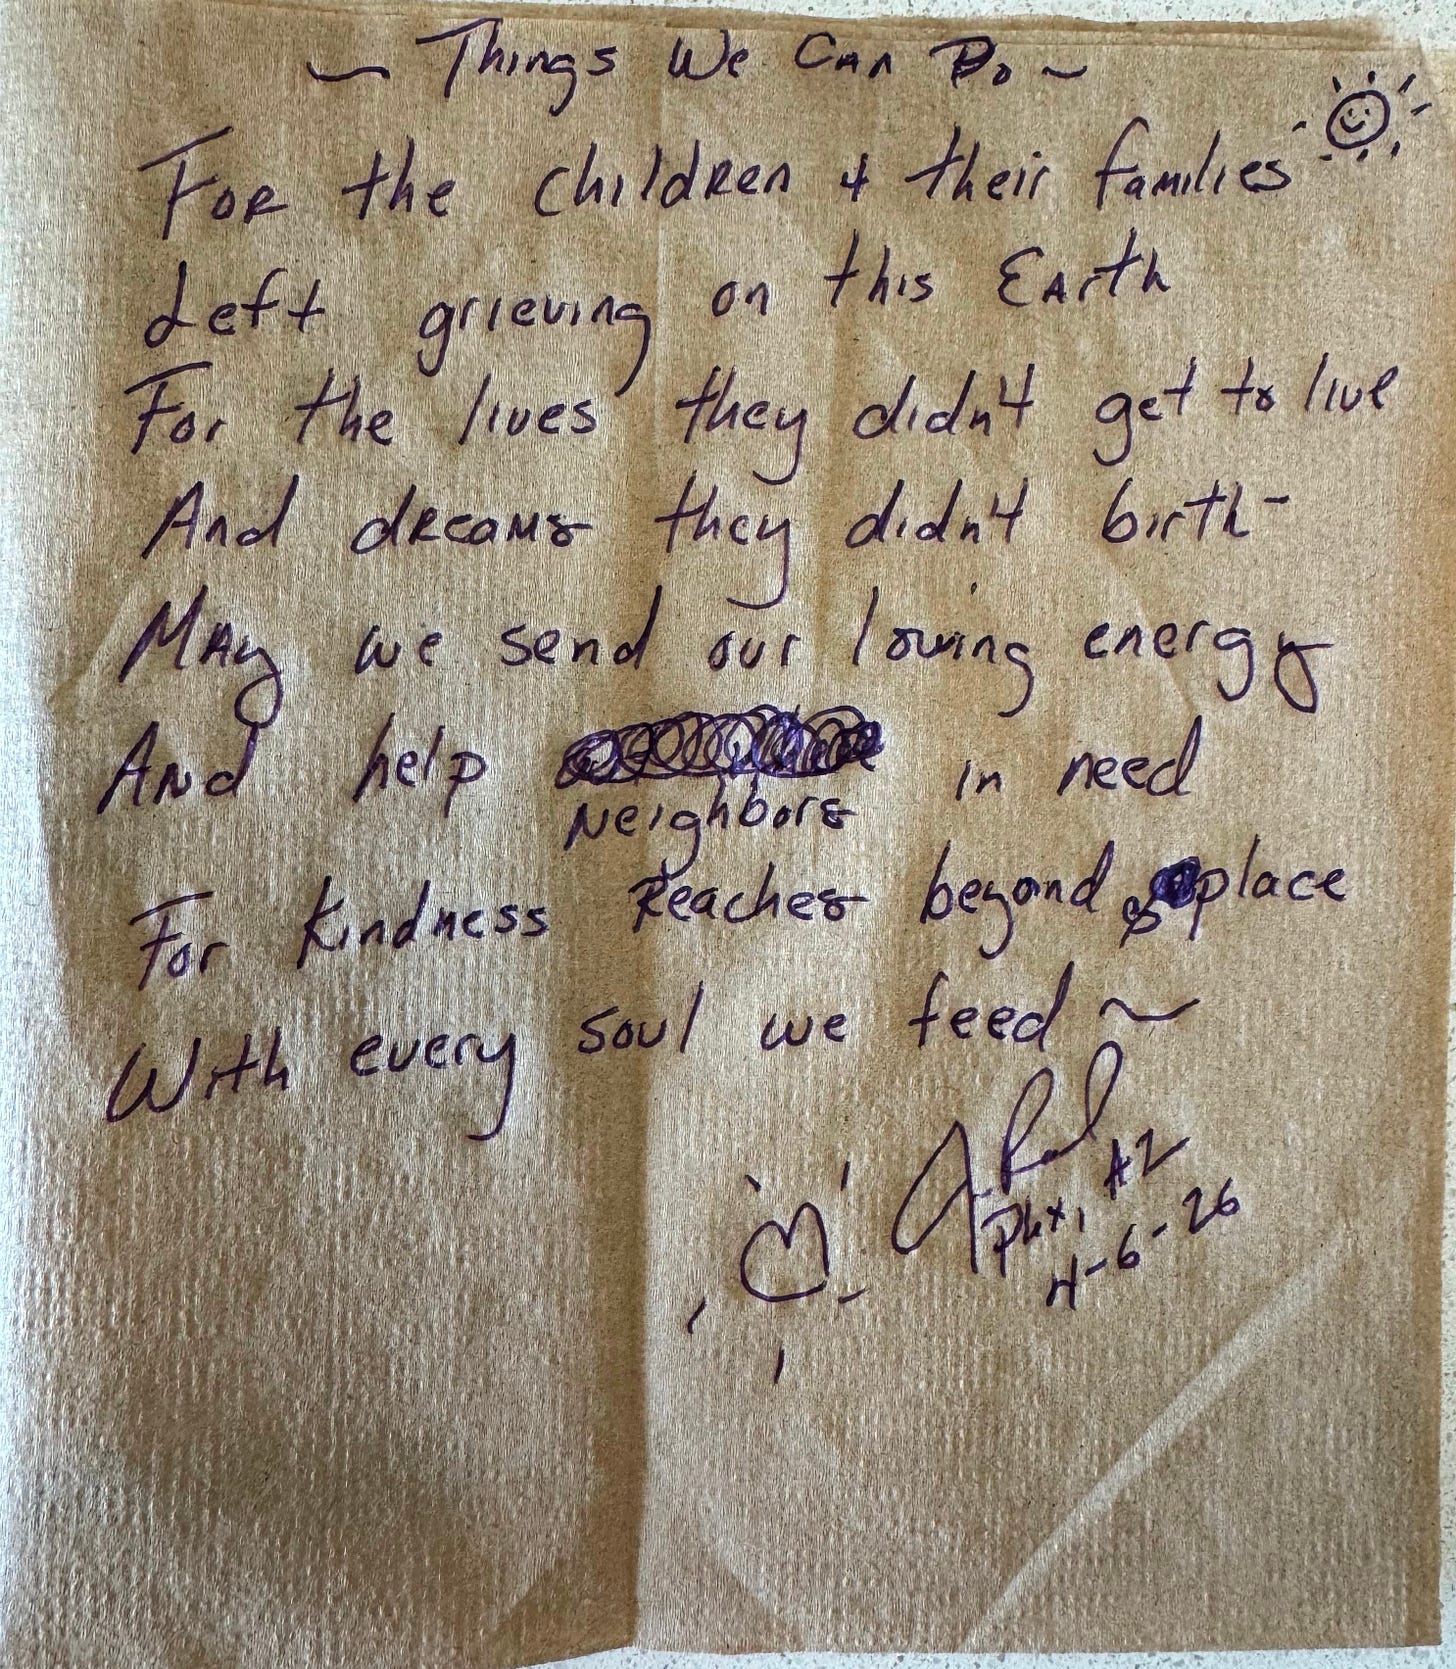 ~ Things We Can Do ~
For the children + their families
Left grieving on this Earth
For the lives they didn't get to live
And dreams they didn't birth -
May we send our loving energy
And help in need
Neighbors
For kindness reaches beyond place
With every soul we feed ~
#2
4-6-26